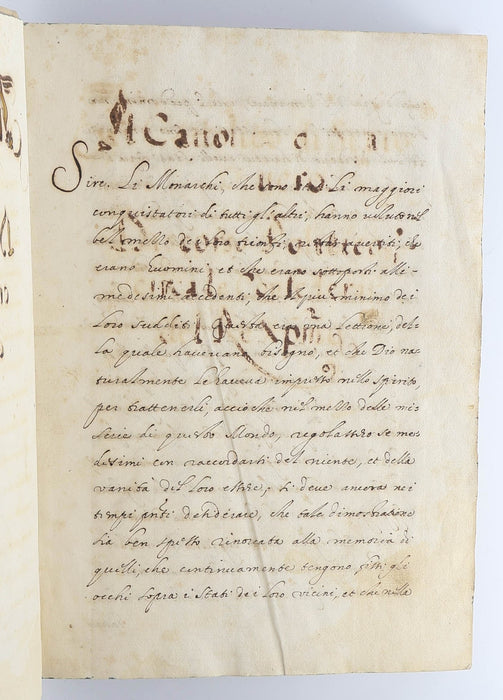 Il Cattolico di Stato
Sire. Li Monarchi, che sono stati Li maggiori
conquistatori di tutti gl'altri, hanno voluto nel
bel mezzo de loro trionfi esser avertiti, che
erano huomini, et che erano sottoposti alli
medesimi accidenti, che il più minimo dei
Loro sudditi questa era una Lettione, del-
la quale havevano bisogno, et che Dio na-
turalmente le haveva impresso nello spirito,
per trattenerli, acciochè nel mezzo delle mi-
serie di questo Mondo, regolassero se me-
desimi con raccordarsi del niente, et della
vanità del loro essere, si deve ancora nei
tempi pnti desiderare, che tale dimostratione
sia ben spesso rinovata alla memoria di
quelli, che continuamente tengono fitti gli
occhi sopra i Stati dei Loro vicini, et che nella